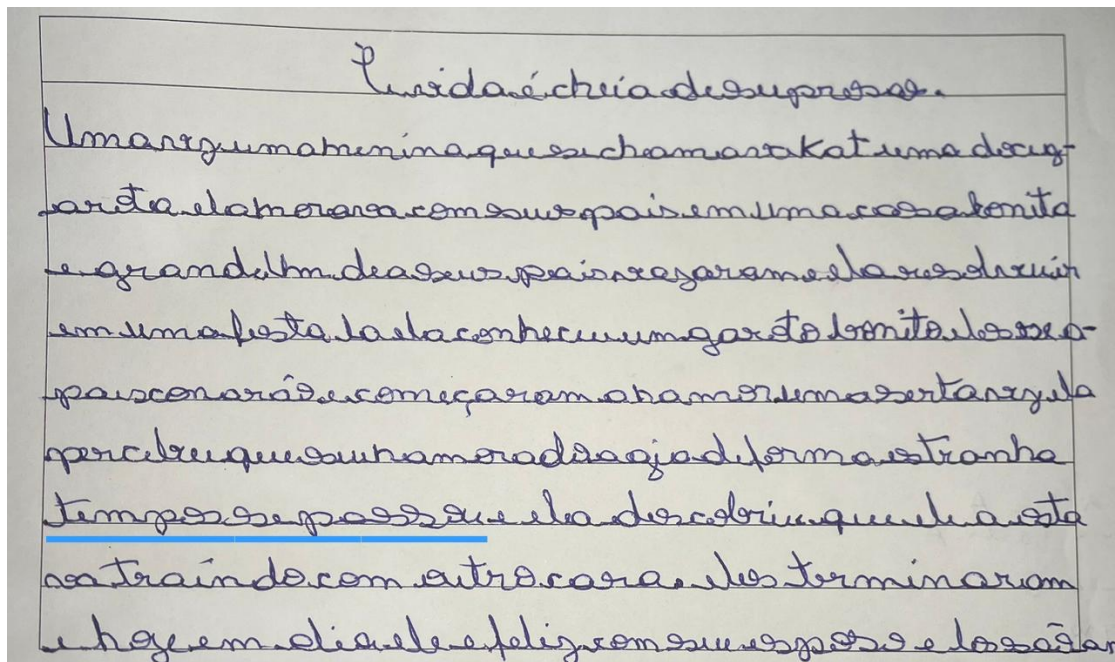 A vida é cheia de supresas.
Uma vez uma menina que se chamava Kat uma doce g-
arota ela morava com seus pais em uma casa bonita
e grande Um dia seus pais viajaram e ela resolveu ir
em uma festa la ela conheceu um garoto bonito eles se a-
paixonarão e começaram a namor uma serta vez ela
percebeu que seu namorado agia de forma estranha
tempos se passou e ela descobriu que ele a esta
va traíndo com outro cara eles terminaram
e hoje em dia ele e feliz com seu esposo e los são